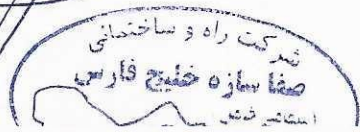 شرکت راه و ساختمانی
صفا سازه خلیج فارس